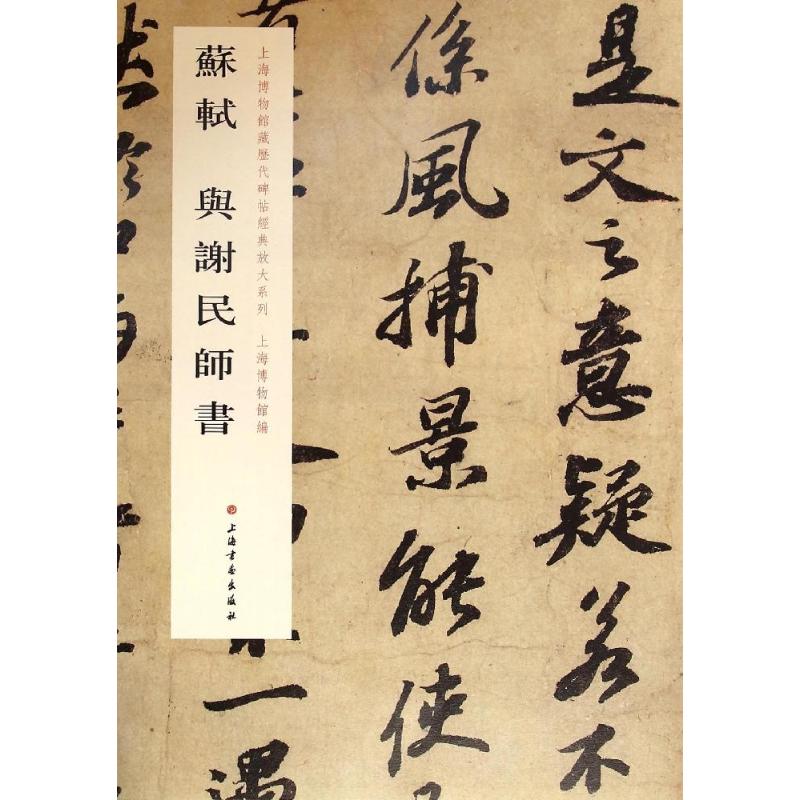 是文之意疑若不
係風捕景能使
一遇
上海博物館藏歷代碑帖經典放大系列 上海博物館編
蘇軾 與謝民師書
上海書畫出版社